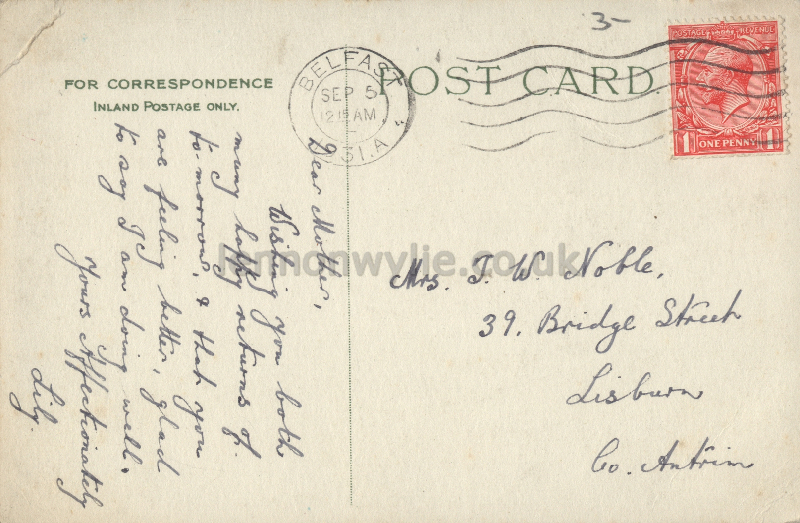 3-
FOR CORRESPONDENCE
INLAND POSTAGE ONLY.
POST CARD.
BELFAST
SEP 5
12.15 AM
31.A
POSTAGE REVENUE
1 ONE PENNY 1
Dear Mother,
Wishing you both
many happy returns of
to-morrow, & that you
are feeling better, glad
to say I am doing well.
Yours Affectionately
Lily.
Mrs. J. W. Noble,
39. Bridge Street
Lisburn
Co. Antrim
lennonwylie.co.uk